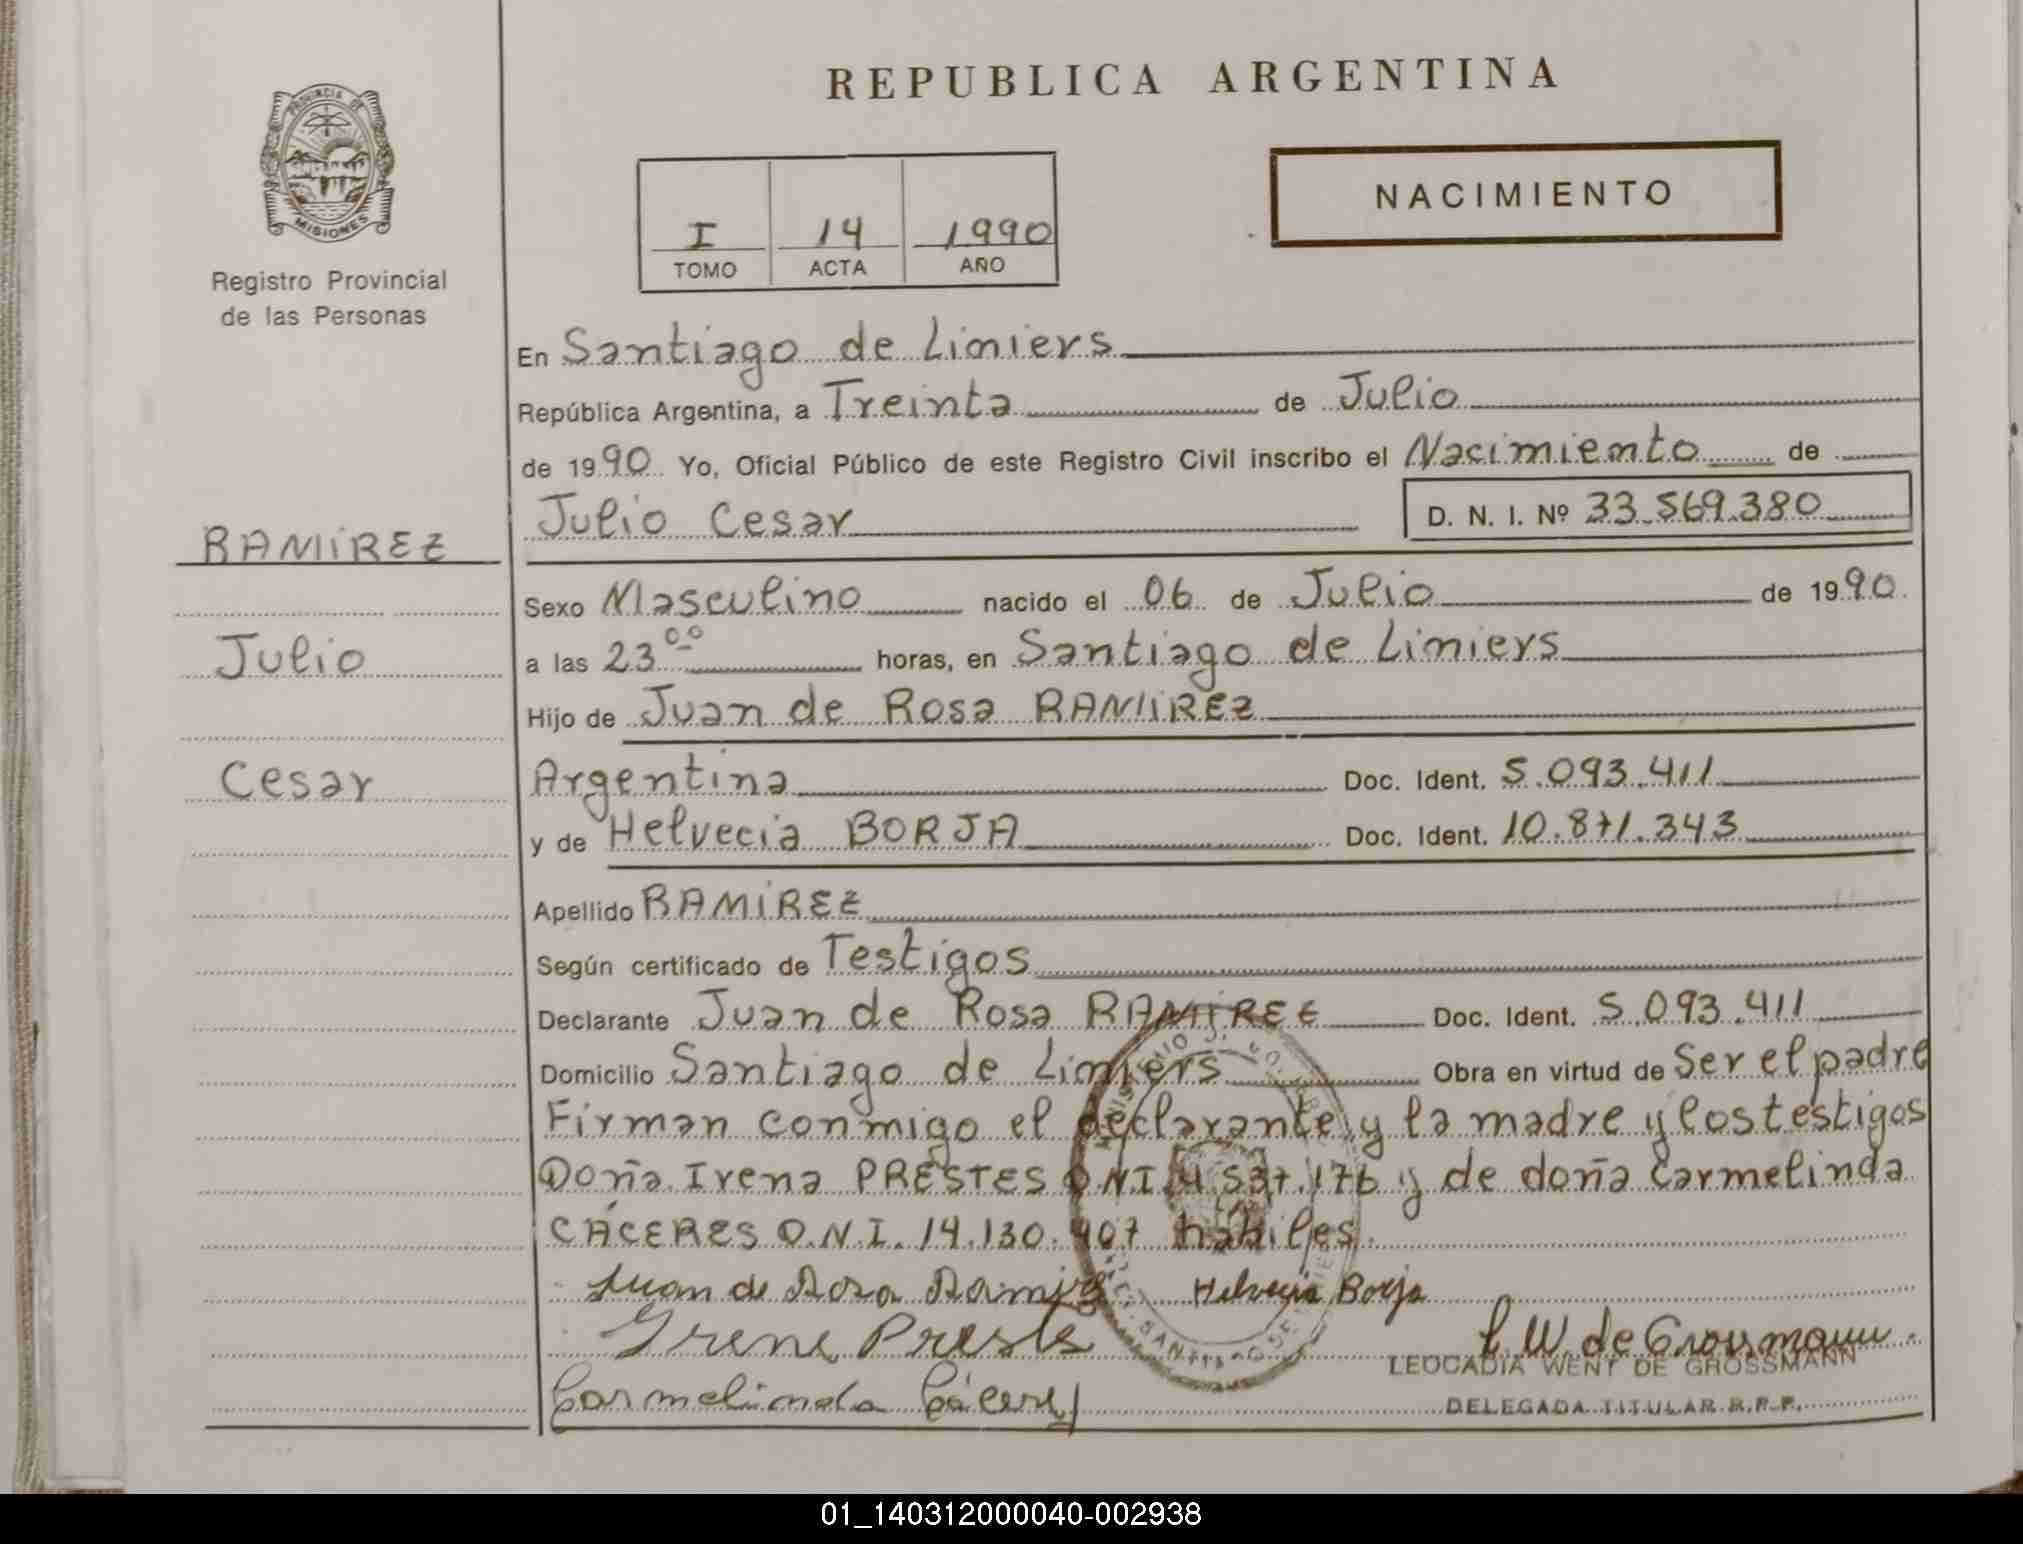 REPUBLICA ARGENTINA
PROVINCIA DE
MISIONES
Registro Provincial
de las Personas
I 14 1990
TOMO ACTA AÑO
NACIMIENTO
En Santiago de Liniers
República Argentina, a Treinta de Julio
de 1990 Yo, Oficial Público de este Registro Civil inscribo el Nacimiento de
Julio Cesar D. N. I. Nº 33.569.380
RAMIREZ
Julio
Cesar
Sexo Masculino nacido el 06 de Julio de 1990
a las 23 00 horas, en Santiago de Liniers
Hijo de Juan de Rosa RAMIREZ
Argentina Doc. Ident. 5.093.411
y de Helvecia BORJA Doc. Ident. 10.871.343
Apellido RAMIREZ
Según certificado de Testigos
Declarante Juan de Rosa RAMIREZ Doc. Ident. 5.093.411
Domicilio Santiago de Liniers Obra en virtud de Ser el padre
Firman conmigo el declarante y la madre y los testigos
Doña Irena PRESTES D.N.I. 4.537.176 y de doña Carmelinda
CÁCERES D.N.I. 14.130.407 hábiles.
Juan de Rosa Ramirez Helvecia Borja
Irene Prestes
L W. de Grossmann
LEOCADIA WENY DE GROSSMANN
Carmelinda Cáceres
DELEGADA TITULAR R.P.P.
01_140312000040-002938